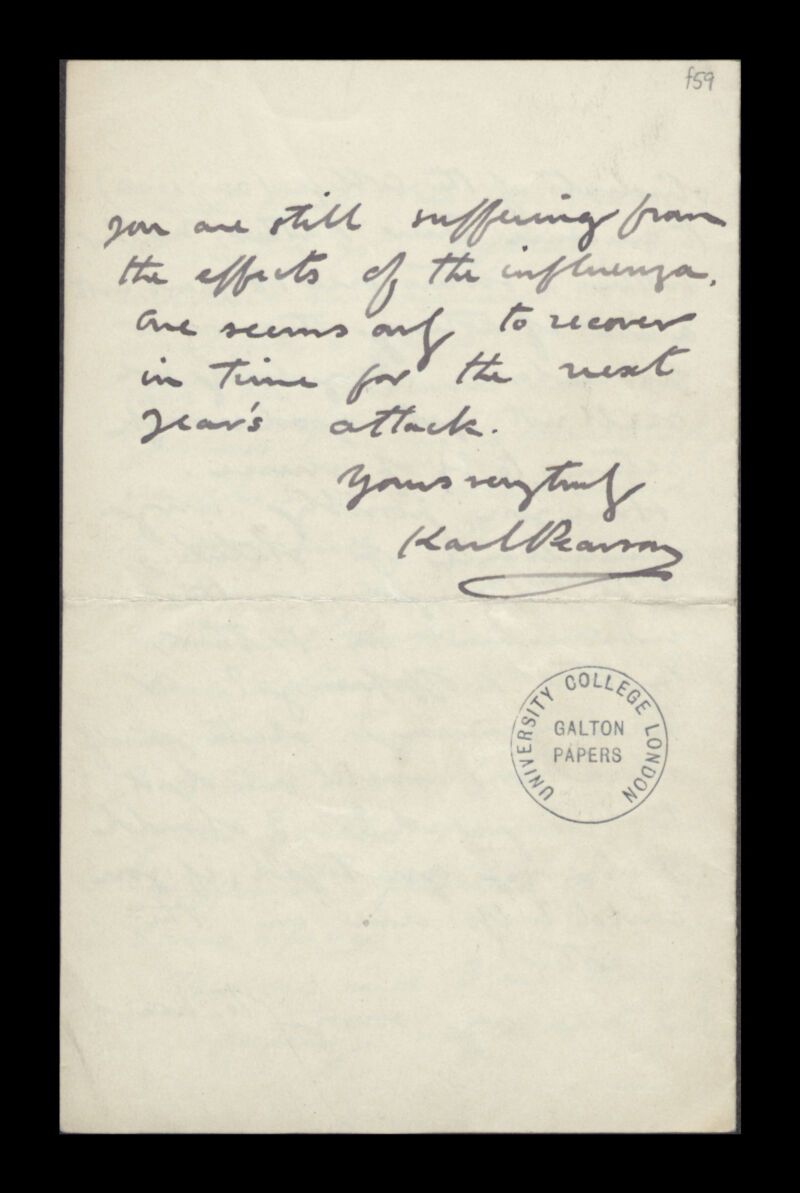 f59
you are still suffering from
the effects of the influenza.
One seems only to recover
in time for the next
year's attack.
Yours very truly
Karl Pearson
UNIVERSITY COLLEGE LONDON
GALTON
PAPERS